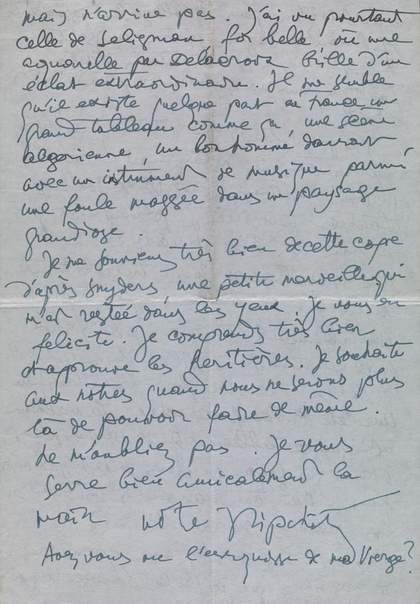 mais n'arrive pas. J'ai vu pourtant
celle de Seligman for belle où une
aquarelle par Delacroix brille d'un
éclat extraordinaire. Il me semble
qu'il existe quelque part en France un
grand tableau comme ça, une scène
algérienne, un bonhomme dansant
avec un instrument de musique parmi
une foule dans un paysage
grandiose.
Je me souviens très bien de cette copie
d'après Snyders une petite merveille qui
m'est restée dans les yeux. Je vous en
félicite. Je comprends très bien
et approuve les héritières. Je souhaite
aux nôtres quand nous ne serons plus
là de pouvoir faire de même.
Ne m'oubliez pas. Je vous
serre bien amicalement la
main votre
Avez vous vu l'esquisse de ma Vierge?